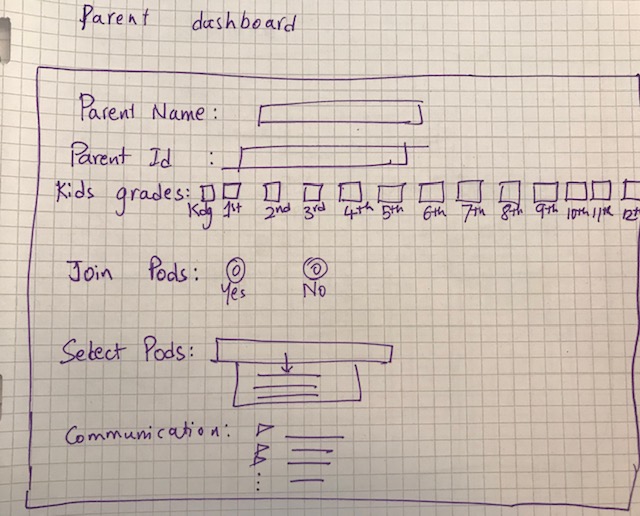 Parent dashboard
Parent Name:
Parent Id :
Kids grades:
Kdg 1st 2nd 3rd 4th 5th 6th 7th 8th 9th 10th 11th 12th
Join Pods:
Yes No
Select Pods:
Communication: